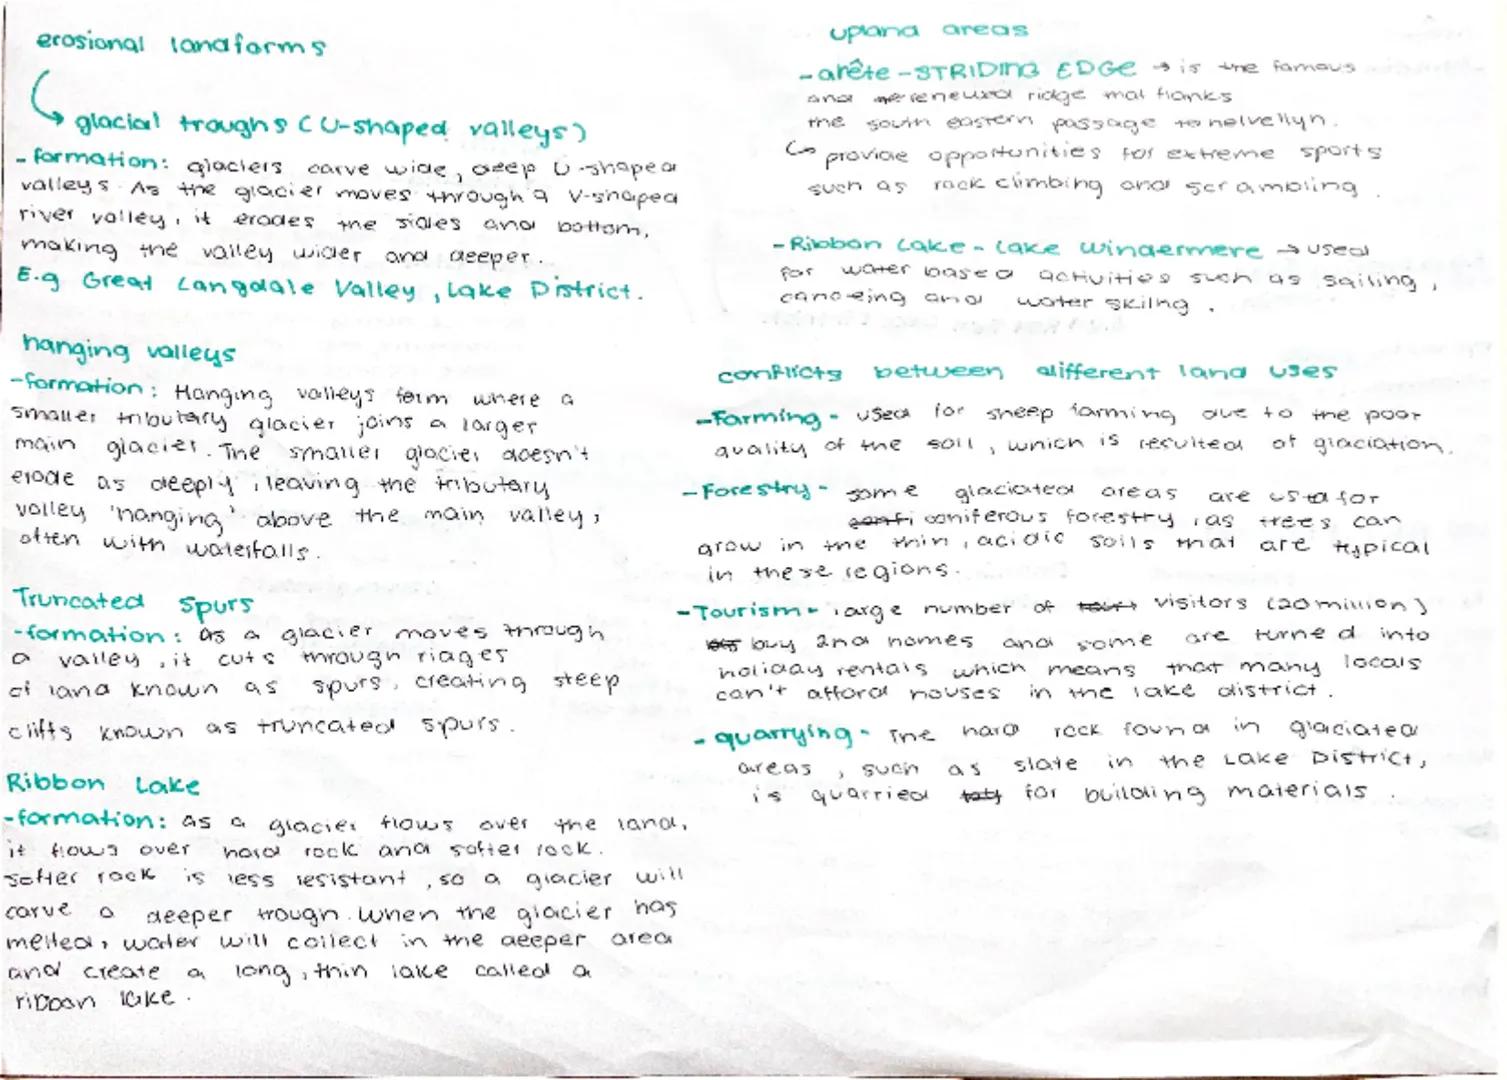 erosional landforms
glacial troughs (U-shaped valleys)
- formation: glaciers carve wide, deep U-shaped
valleys. As the glacier moves through a V-shaped
river valley, it erodes the sides and bottom,
making the valley wider and deeper.
E.g Great Langdale Valley, Lake District.
hanging valleys
- formation: Hanging valleys form where a
smaller tributary glacier joins a larger
main glacier. The smaller glacier doesn't
erode as deeply, leaving the tributary
valley 'hanging' above the main valley,
often with waterfalls.
Truncated spurs
- formation: as a glacier moves through
a valley, it cuts through ridges
of land known as spurs, creating steep
cliffs known as truncated spurs.
Ribbon Lake
- formation: as a glacier flows over the land,
it flows over hard rock and softer rock.
Softer rock is less resistant, so a glacier will
carve a deeper trough. When the glacier has
melted, water will collect in the deeper area
and create a long, thin lake called a
ribbon lake.
upland areas
- arête - STRIDING EDGE → is the famous
and renewed ridge that flanks
the south eastern passage to helvellyn.
↳ provide opportunities for extreme sports
such as rock climbing and scrambling.
- Ribbon Lake - Lake Windermere → used
for water based activities such as sailing,
canoeing and water skiing.
conflicts between different land uses
- Farming - used for sheep farming due to the poor
quality of the soil, which is resulted of glaciation.
- Forestry - some glaciated areas are used for
coniferous forestry, as trees can
grow in the thin, acidic soils that are typical
in these regions.
- Tourism - large number of visitors (20 million)
buy 2nd homes and some are turned into
holiday rentals which means that many locals
can't afford houses in the lake district.
- quarrying - The hard rock found in glaciated
areas, such as slate in the Lake District,
is quarried for building materials.